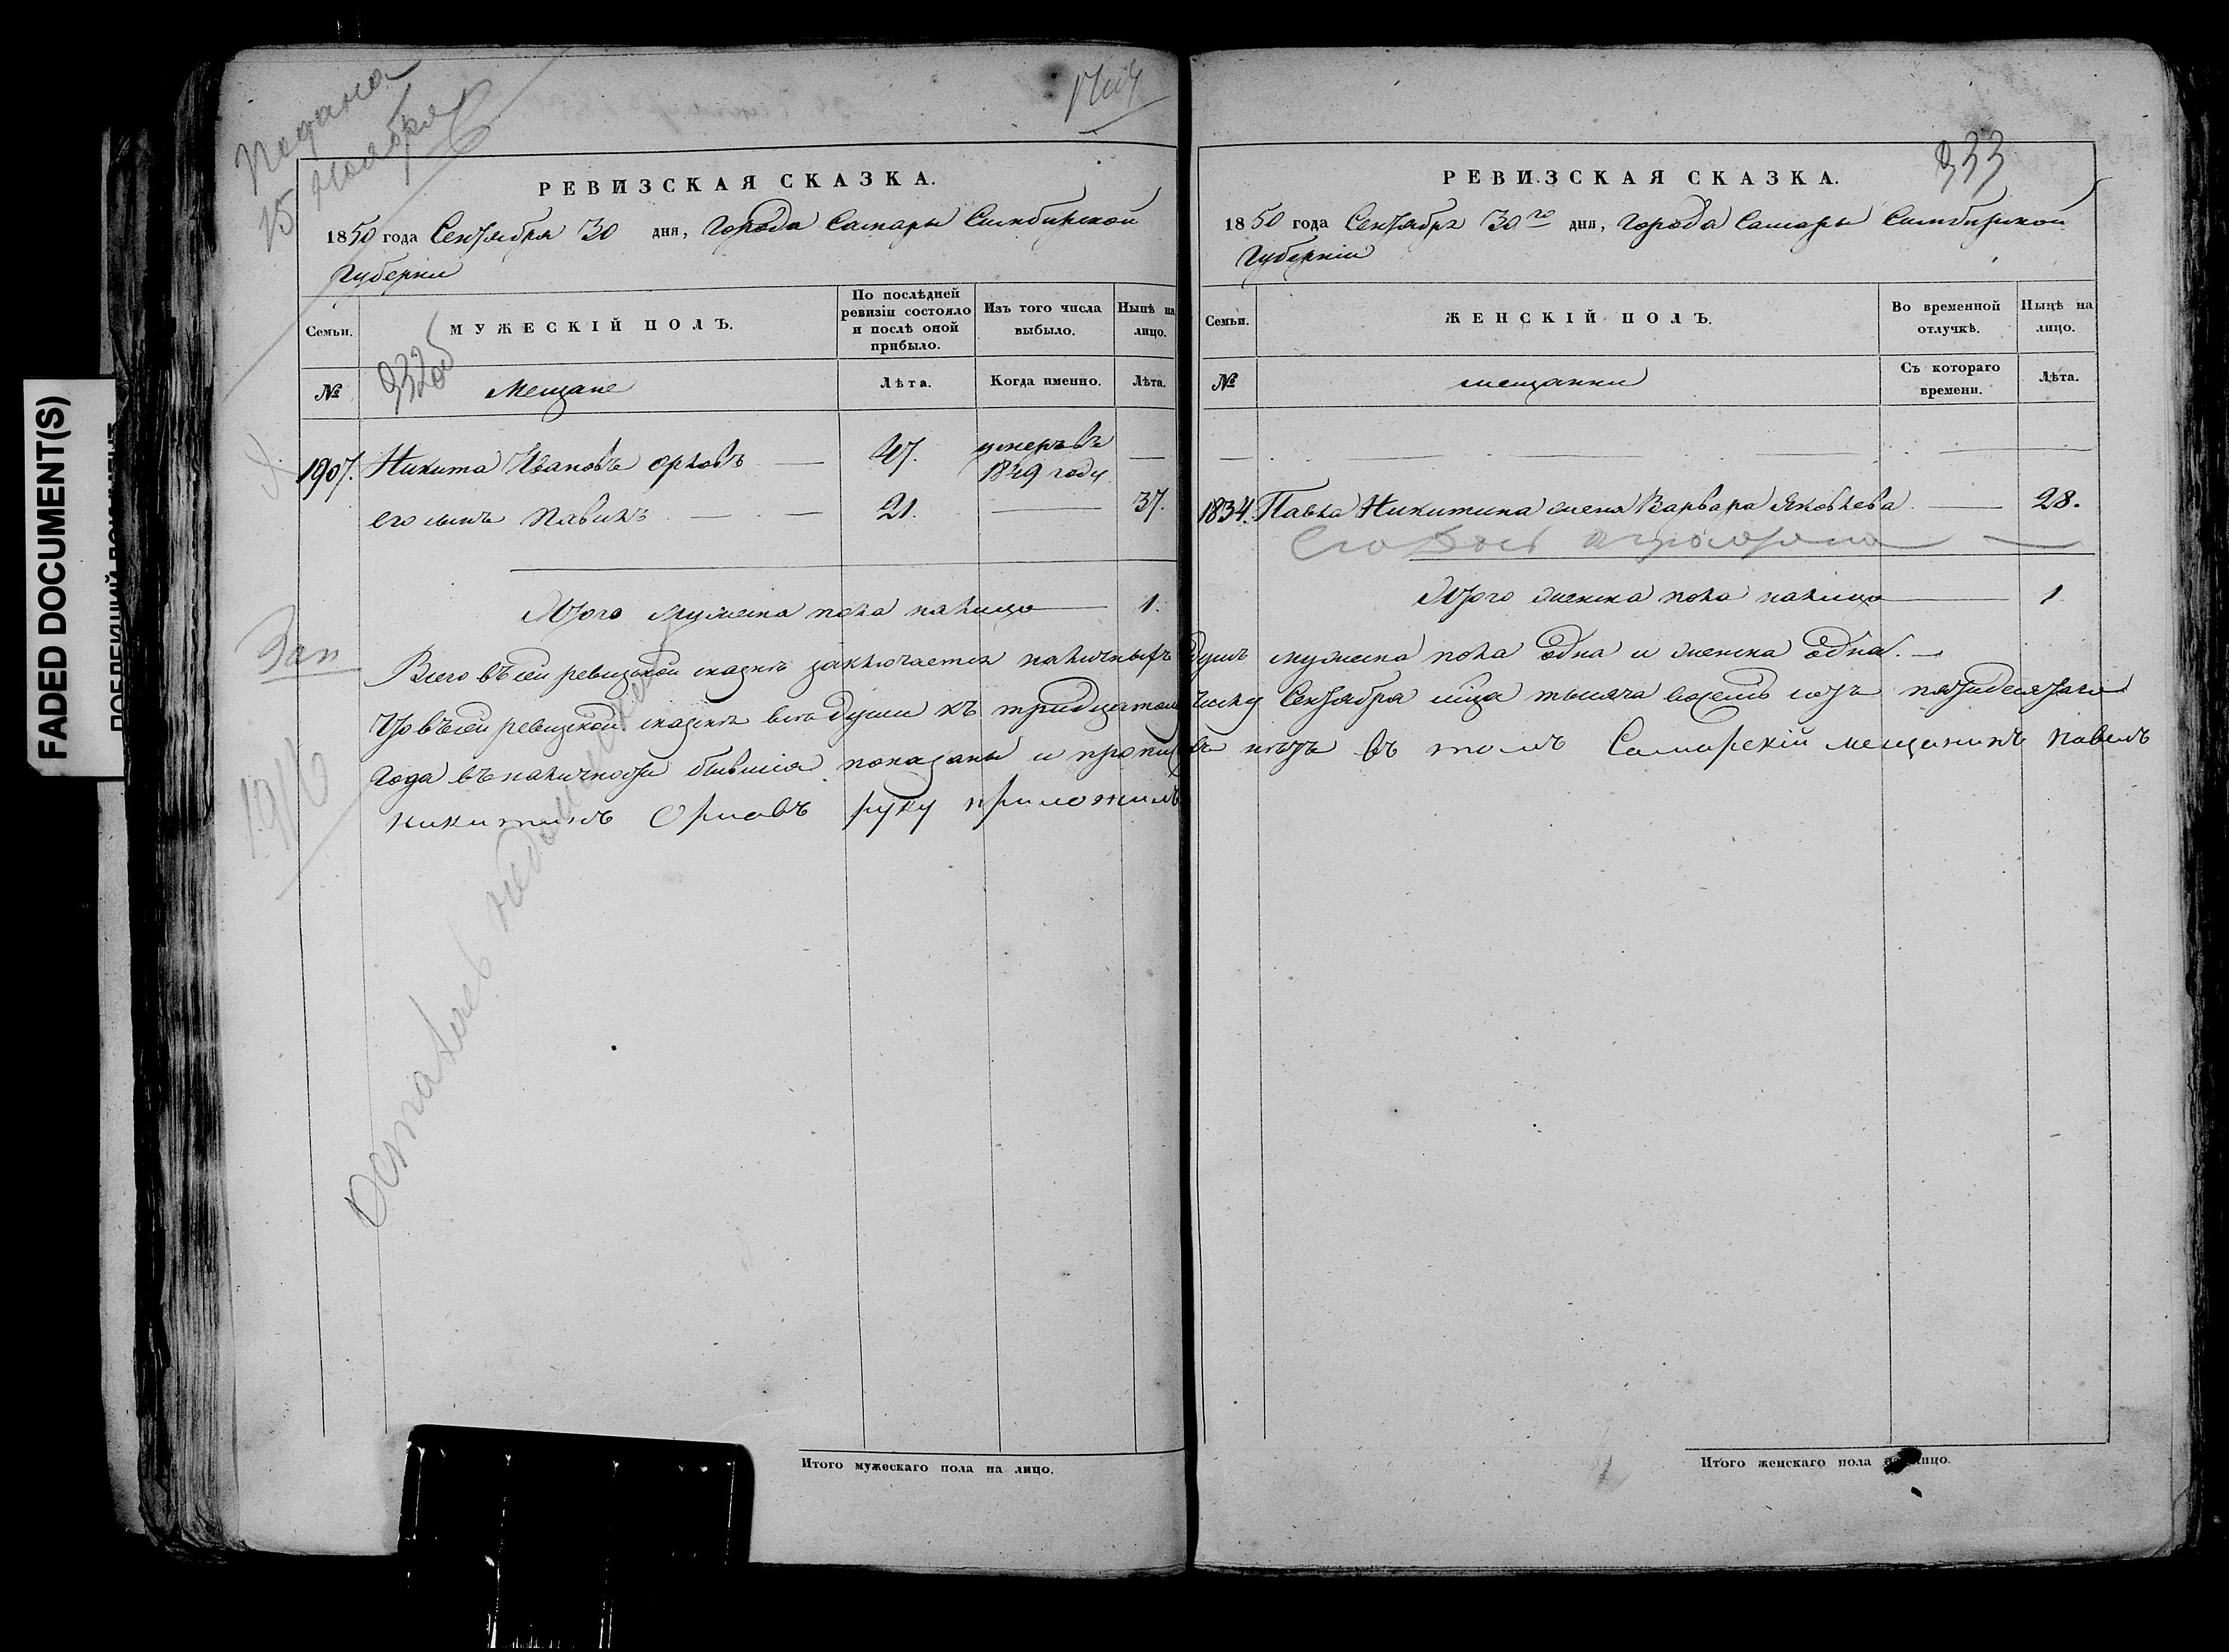 FADED DOCUMENT(S)
Подано
15 Ноября
РЕВИЗСКАЯ СКАЗКА.
1850 года Сентября 30 дня, Города Самары Симбирской
Губернии
Семьи.
МУЖЕСКІЙ ПОЛЪ.
По послѣдней ревизіи состояло и послѣ оной прибыло.
Изъ того числа выбыло.
Нынѣ на лицо.
№
Мещане
Лѣта.
Когда именно.
Лѣта.
1907. Никита Ивановъ Орловъ — 47. умеръ въ 1849 году —
его сынъ Павилъ — — 21. — 37.
Итого мужеска пола налицо — 1.
Зап
1916
РЕВИЗСКАЯ СКАЗКА.
333
1850 года Сентября 30го дня, Города Самары Симбирской
Губерніи
Семьи.
ЖЕНСКІЙ ПОЛЪ.
Во временной отлучкѣ.
Нынѣ на лицо.
№
мещанки
Съ котораго времени.
Лѣта.
1834. Павла Никитина жена Варвара Яковлева — 28.
Итого женска пола налицо — 1
Всего въ сей ревизской сказкѣ заключается наличныхъ душъ мужеска пола одна и женска одна. —
Что въ сей ревизской сказкѣ всѣ души къ тридцатому числу Сентября мца тысяча восемь сотъ пятидесятаго
Года въ наличности бывшіе показаны и прописки нѣтъ въ томъ Самарскій мещанинъ Павелъ
Никитинъ Орловъ руку приложилъ
Итого мужескаго пола на лицо.
Итого женскаго пола на лицо.